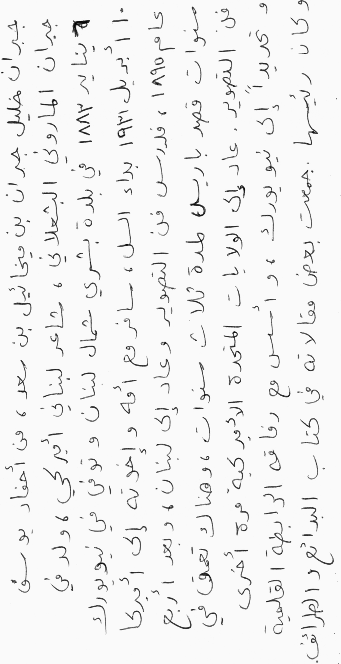 جبران خليل جبران بن ميخائيل بن سعد، من أحفاد يوسف
جبران الماروني البشعلاني، شاعر لبناني أميركي، ولد في
٦ يناير ١٨٨٣ في بلدة بشري شمال لبنان وتوفي في نيويورك
١٠ أبريل ١٩٣١ بداء السل، سافر مع أمه وإخوته إلى أميركا
عام ١٨٩٥، فدرس فن التصوير وعاد إلى لبنان، وبعد أربع
سنوات قصد باريس لمدة ثلاث سنوات، وهناك تعمق في
فن التصوير. عاد إلى الولايات المتحدة الأميركية مرة أخرى
وتحديداً إلى نيويورك، وأسس مع رفاقه الرابطة القلمية
وكان رئيسها. جمعت بعض مقالاته في كتاب البدائع والطرائف.